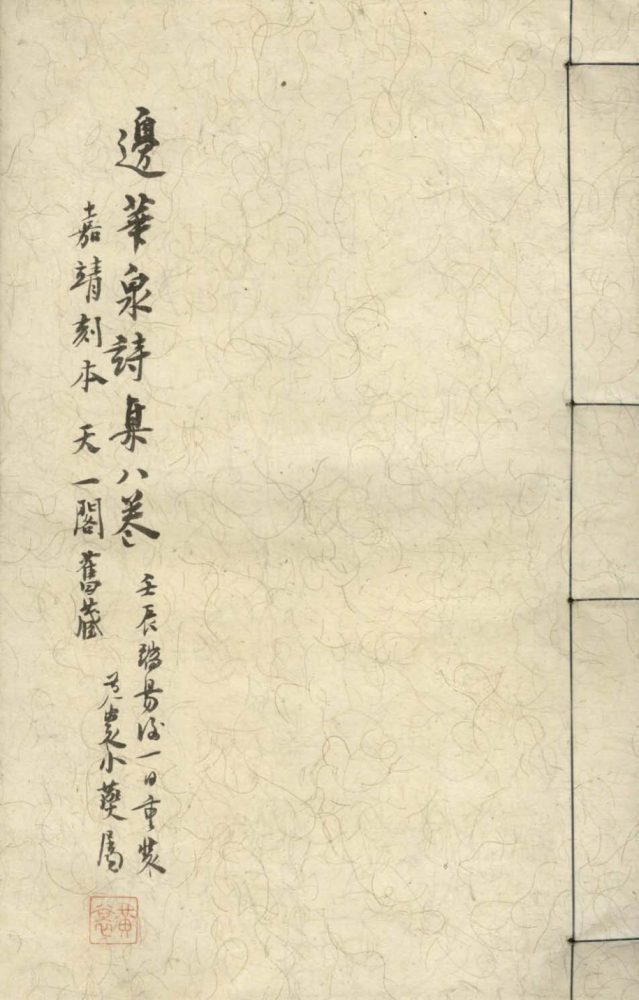 邊華泉詩集八卷
嘉靖刻本 天一閣舊藏
壬辰端昜後一日重裝
小燕屬
黃裳